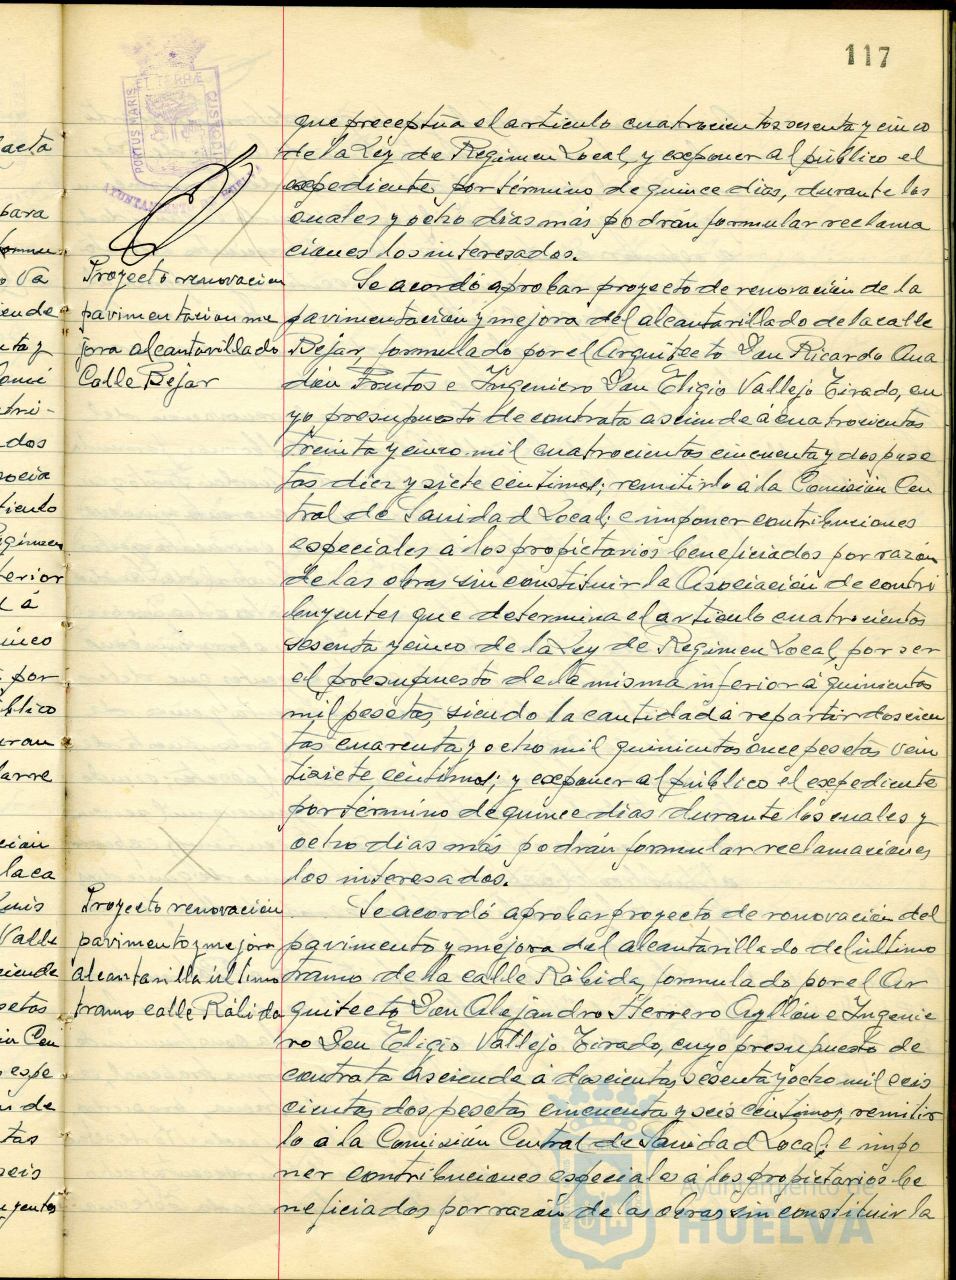 117
que preceptúa el artículo cuatrocientos sesenta y cinco
de la Ley de Regimen Local, y exponer al público el
expediente, por término de quince dias, durante los
cuales y ocho dias más podrán formular reclama
ciones los interesados.
Proyecto renovación
pavimentacion me
jora alcantarillado
Calle Bejar
Se acordó aprobar proyecto de renovación de la
pavimentación y mejora del alcantarillado de la calle
Bejar, formulado por el Arquitecto Don Ricardo Ana
dón Frutos e Ingeniero Don Eligio Vallejo Tirado, cu
yo presupuesto de contrata asciende á cuatrocientas
treinta y cinco mil cuatrocientas cincuenta y dos pese
tas diez y siete céntimos; remitirlo á la Comisión Cen
tral de Sanidad Local; e imponer contribuciones
especiales á los propietarios beneficiados por razón
de las obras sin constituir la Asociación de contri
buyentes que determina el artículo cuatrocientos
sesenta y cinco de la Ley de Regimen Local, por ser
el presupuesto de la misma inferior á quinientas
mil pesetas, siendo la cantidad á repartir doscien
tas cuarenta y ocho mil quinientas once pesetas vein
tisiete céntimos; y exponer al público el expediente
por término de quince dias durante los cuales y
ocho dias más podrán formular reclamaciones
los interesados.
Proyecto renovación
pavimento y mejora
alcantarilla último
tramo calle Rábida
Se acordó aprobar proyecto de renovación del
pavimento y mejora del alcantarillado del último
tramo de la calle Rábida, formulado por el Ar
quitecto Don Alejandro Herrero Ayllón e Ingenie
ro Don Eligio Vallejo Tirado, cuyo presupuesto de
contrata asciende á doscientas sesenta y ocho mil seis
cientas dos pesetas cincuenta y seis céntimos, remitir
lo á la Comisión Central de Sanidad Local; e impo
ner contribuciones especiales á los propietarios be
neficiados por razón de las obras sin constituir la
PORTUS MARIS
ET TERRÆ
CUSTODIA
Ayuntamiento de
HUELVA